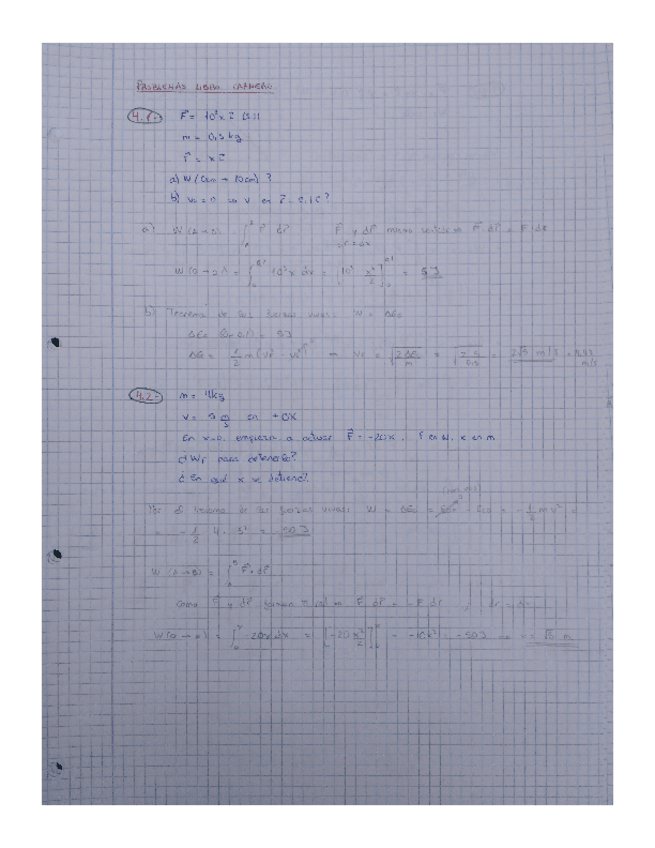 PROBLEMAS LIBRO
4.1.- F⃗ = 10³x i⃗ (S.I)
m = 0,5 kg
r⃗ = x i⃗
a) W (0cm → 10cm) ?
b) v₀ = 0 v en
a) W (A→B) = ∫ F⃗ dr⃗ F⃗ y dr⃗ mismo sentido ⇒ F⃗ · dr⃗ = F · dr
W (0→0,1) = ∫₀^0,1 10³x dx = [10³ x²/2]₀^0,1 = 5 J
b) Teorema de las fuerzas vivas: W = ΔEc
ΔEc (0→0,1) = 5 J
ΔEc = 1/2 m (vf² - v₀²) ⇒ vf = √(2 ΔEc/m) = √(2·5/0,5) = 2√5 m/s = m/s
4.2.- m = 4kg
v = 5 m/s en +OX
En x=0, empieza a actuar F⃗ = -20x. F en N, x en m
¿WF para detenerlo?
¿En qué x se detiene?
Por el teorema de las fuerzas vivas: W = ΔEc = - Ec₀ = - 1/2 m v² =
= - 1/2 4 · 5² = - 50 J
W (A→B) = ∫ F⃗ · dr⃗
Como F⃗ y dr⃗ forman π rad ⇒ F⃗ dr⃗ = - F dr
W (0→x) = ∫₀^x -20x dx = [-20 x²/2]₀^x = -10x² = -50 J ⇒ x = √5 m